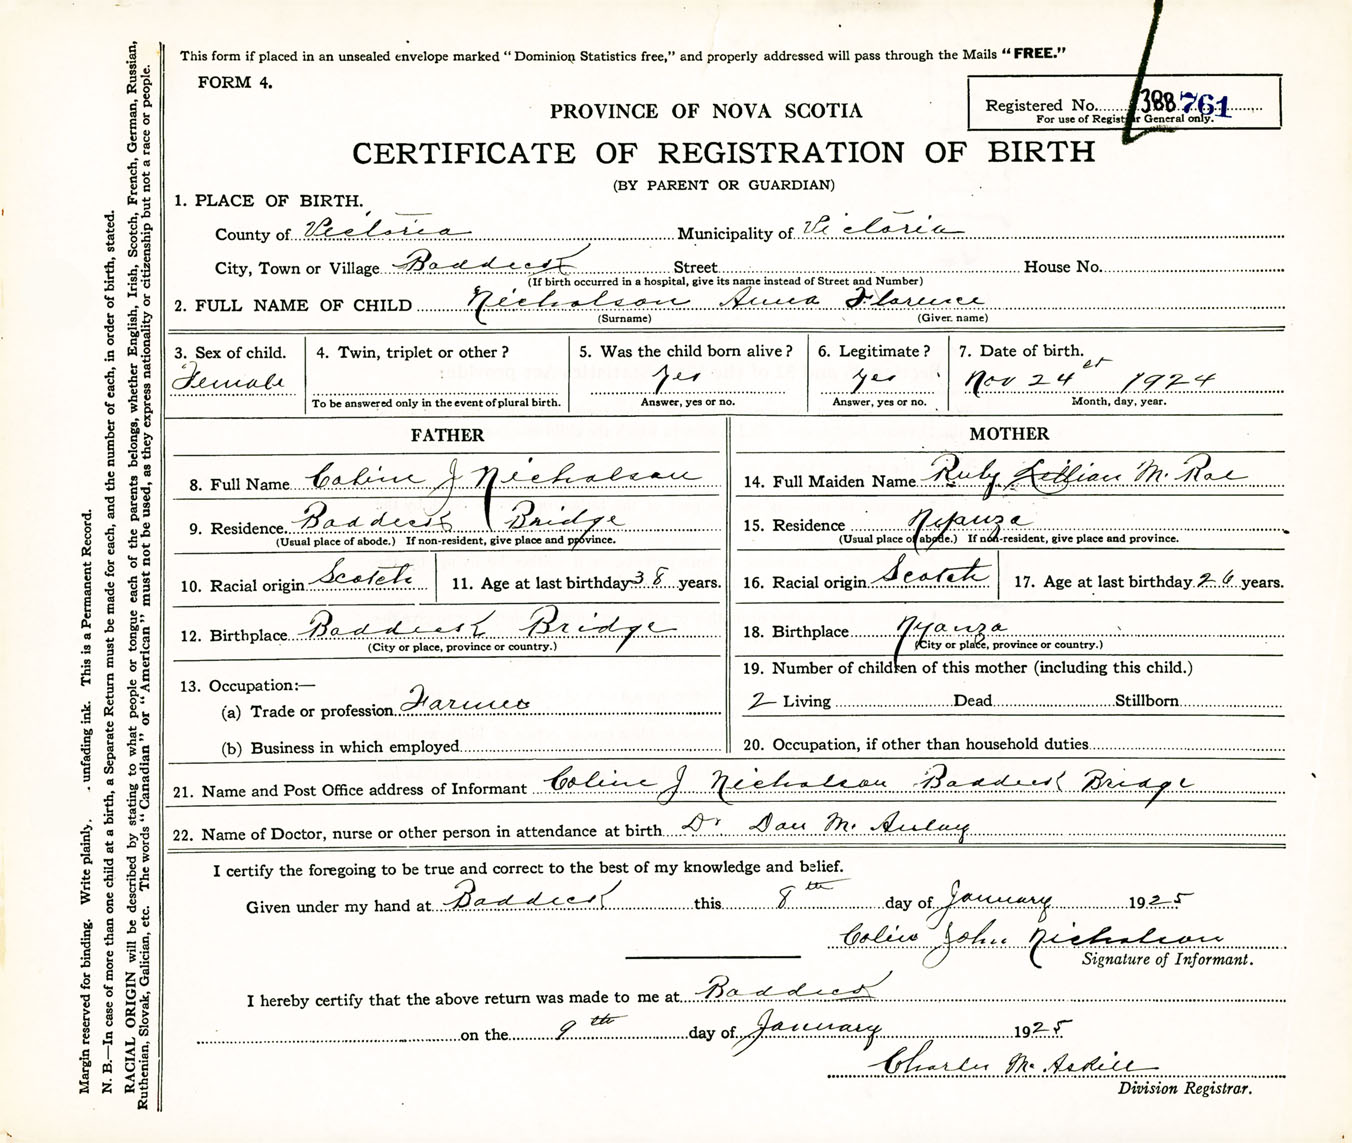 This form if placed in an unsealed envelope marked “Dominion Statistics free,” and properly addressed will pass through the Mails “FREE.”
FORM 4.
Registered No. 388 761
For use of Registrar General only.
PROVINCE OF NOVA SCOTIA
CERTIFICATE OF REGISTRATION OF BIRTH
(BY PARENT OR GUARDIAN)
1. PLACE OF BIRTH.
County of Victoria Municipality of Victoria
City, Town or Village Baddeck Street House No.
(If birth occurred in a hospital, give its name instead of Street and Number)
2. FULL NAME OF CHILD Nicholson Anna Florence
(Surname) (Given name)
3. Sex of child. 4. Twin, triplet or other? 5. Was the child born alive? 6. Legitimate? 7. Date of birth.
Female Yes Yes Nov 24 1924
To be answered only in the event of plural birth. Answer, yes or no. Answer, yes or no. Month, day, year.
FATHER
8. Full Name Coline J Nicholson
9. Residence Baddeck Bridge
(Usual place of abode.) If non-resident, give place and province.
10. Racial origin Scotch 11. Age at last birthday 38 years.
12. Birthplace Baddeck Bridge
(City or place, province or country.)
13. Occupation:—
(a) Trade or profession Farmer
(b) Business in which employed
MOTHER
14. Full Maiden Name Ruby Lillian McRae
15. Residence Nyanza
(Usual place of abode.) If non-resident, give place and province.
16. Racial origin Scotch 17. Age at last birthday 26 years.
18. Birthplace Nyanza
(City or place, province or country.)
19. Number of children of this mother (including this child.)
2 Living Dead Stillborn
20. Occupation, if other than household duties
21. Name and Post Office address of Informant Coline J Nicholson Baddeck Bridge
22. Name of Doctor, nurse or other person in attendance at birth Dr Dan McAulay
I certify the foregoing to be true and correct to the best of my knowledge and belief.
Given under my hand at Baddeck this 8th day of January 1925
Colin John Nicholson
Signature of Informant.
I hereby certify that the above return was made to me at Baddeck
on the 9th day of January 1925
Charles McAskill
Division Registrar.
Margin reserved for binding. Write plainly. unfading ink. This is a Permanent Record.
N. B.—In case of more than one child at a birth, a Separate Return must be made for each, and the number of each, in order of birth, stated.
RACIAL ORIGIN will be described by stating to what people or tongue each of the parents belongs, whether English, Irish, Scotch, French, German, Russian,
Ruthenian, Slovak, Galician, etc. The words “Canadian” or “American” must not be used, as they express nationality or citizenship but not a race or people.